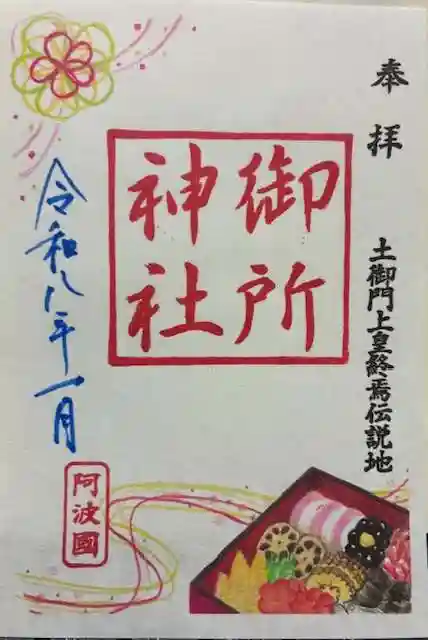 奉拝
土御門上皇終焉伝説地
御所
神社
令和八年一月
阿波國